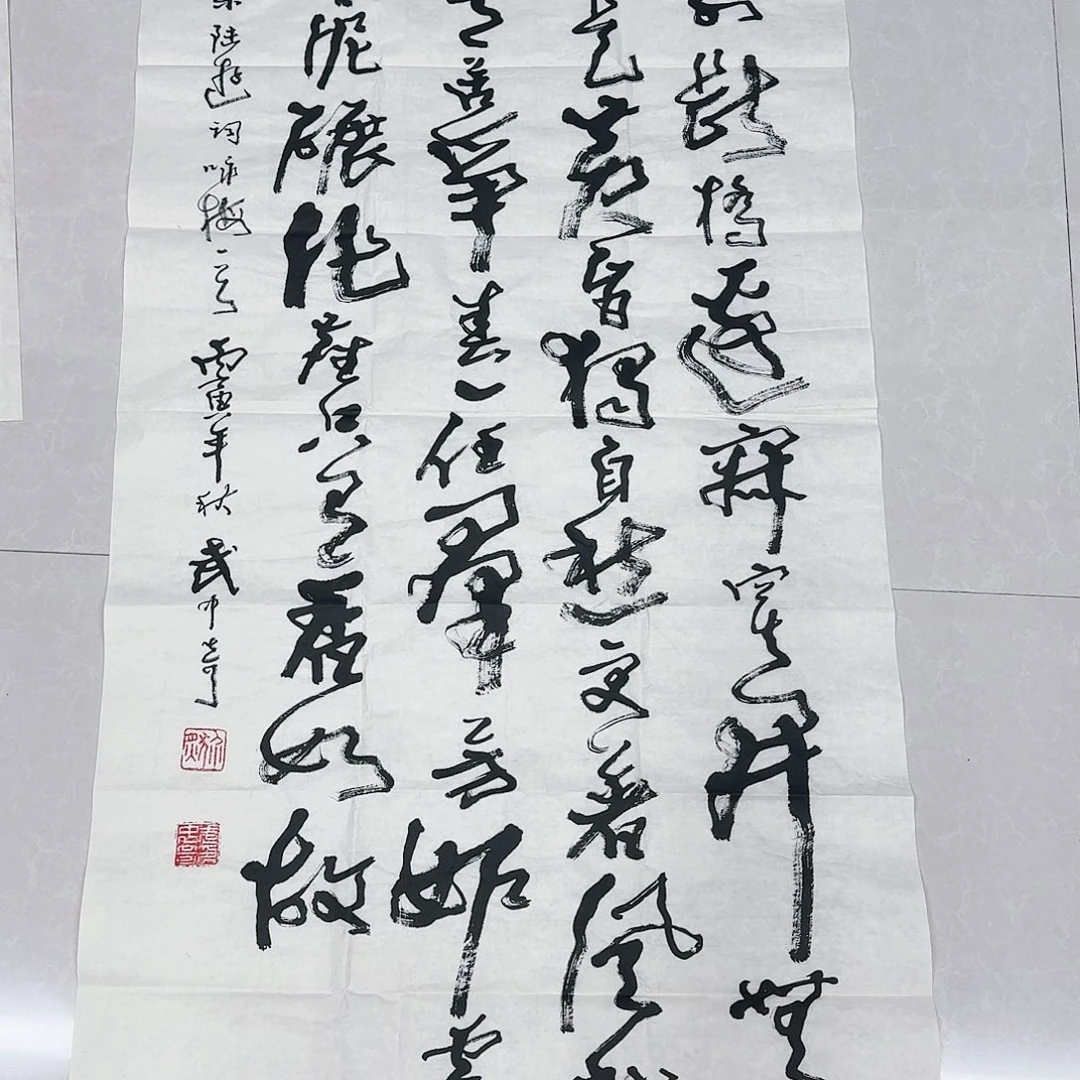 外斷橋邊寂寞开無
是黄昏獨自愁更著風和
意苦爭春一任羣芳妒零
泥碾作塵只有香如故
宋陸游詞咏梅一首 丙寅年秋 武中奇